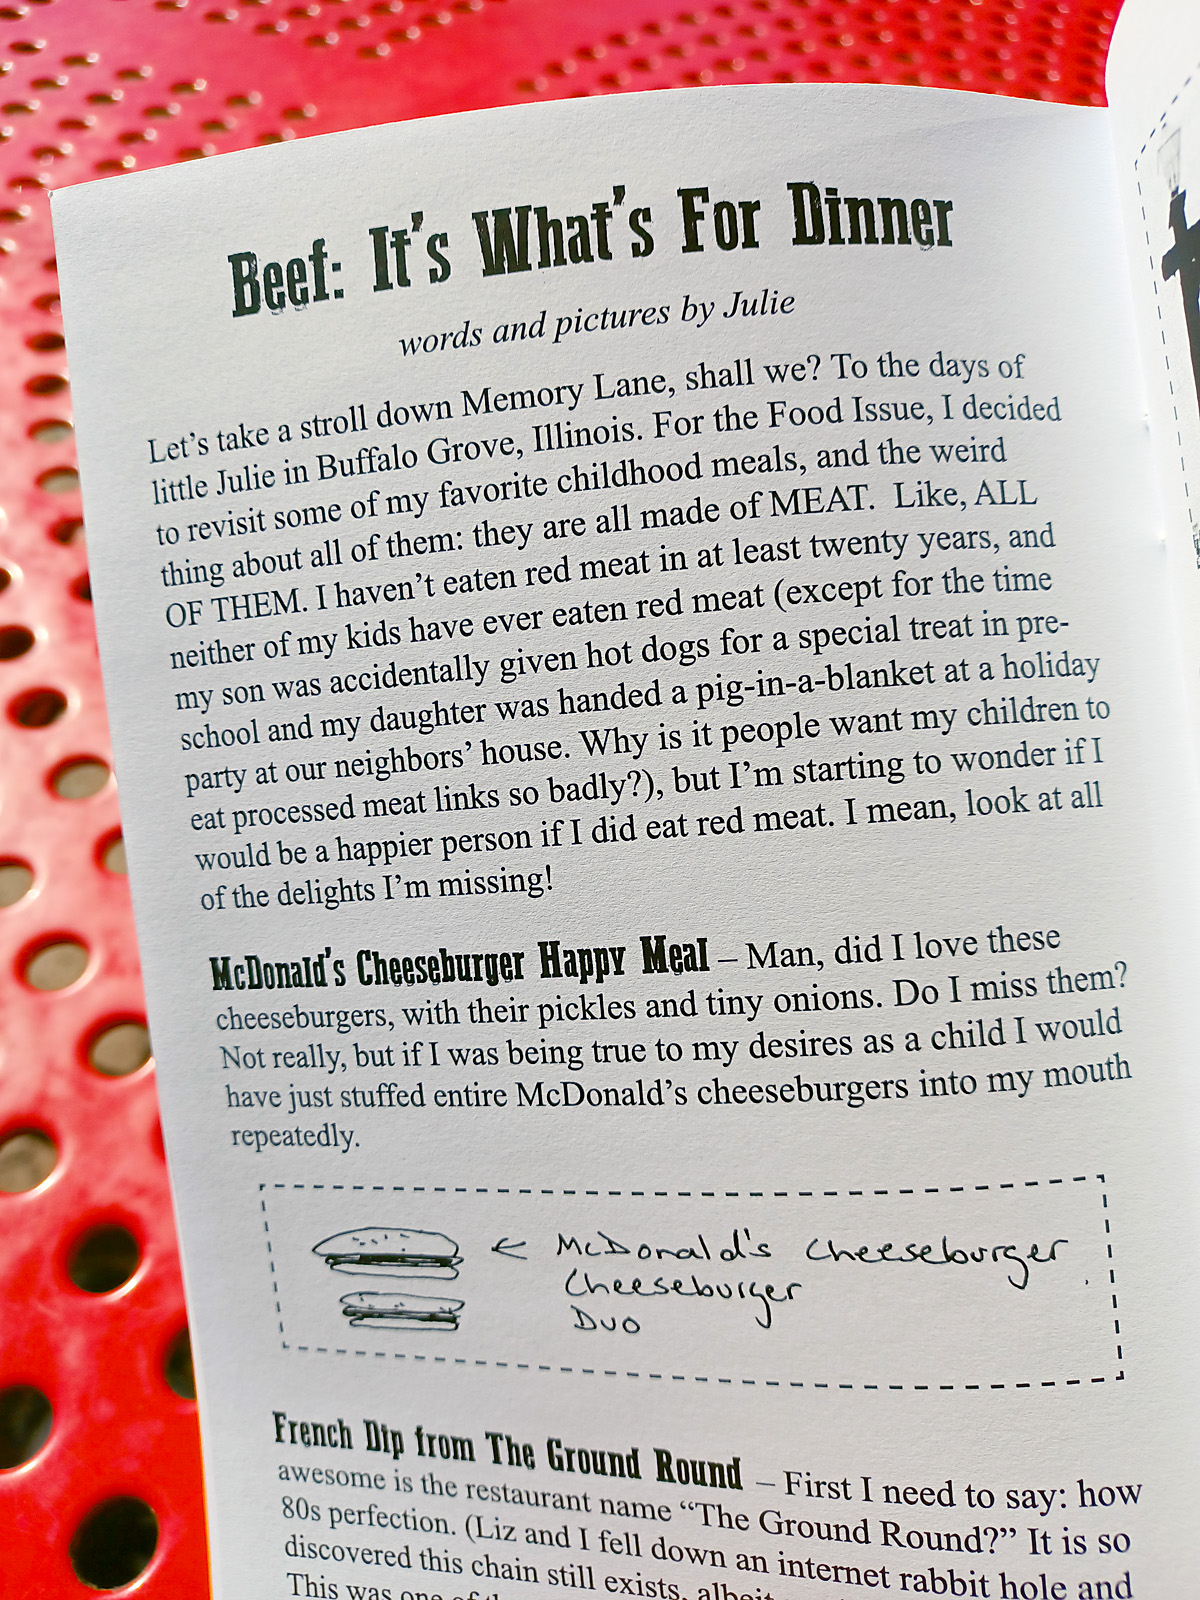 Beef: It's What's For Dinner
words and pictures by Julie
Let's take a stroll down Memory Lane, shall we? To the days of
little Julie in Buffalo Grove, Illinois. For the Food Issue, I decided
to revisit some of my favorite childhood meals, and the weird
thing about all of them: they are all made of MEAT. Like, ALL
OF THEM. I haven't eaten red meat in at least twenty years, and
neither of my kids have ever eaten red meat (except for the time
my son was accidentally given hot dogs for a special treat in pre-
school and my daughter was handed a pig-in-a-blanket at a holiday
party at our neighbors' house. Why is it people want my children to
eat processed meat links so badly?), but I'm starting to wonder if I
would be a happier person if I did eat red meat. I mean, look at all
of the delights I'm missing!
McDonald's Cheeseburger Happy Meal – Man, did I love these
cheeseburgers, with their pickles and tiny onions. Do I miss them?
Not really, but if I was being true to my desires as a child I would
have just stuffed entire McDonald's cheeseburgers into my mouth
repeatedly.
← McDonald's Cheeseburger
Cheeseburger
Duo
French Dip from The Ground Round – First I need to say: how
awesome is the restaurant name “The Ground Round?” It is so
80s perfection. (Liz and I fell down an internet rabbit hole and
discovered this chain still exists, albeit
This was one of